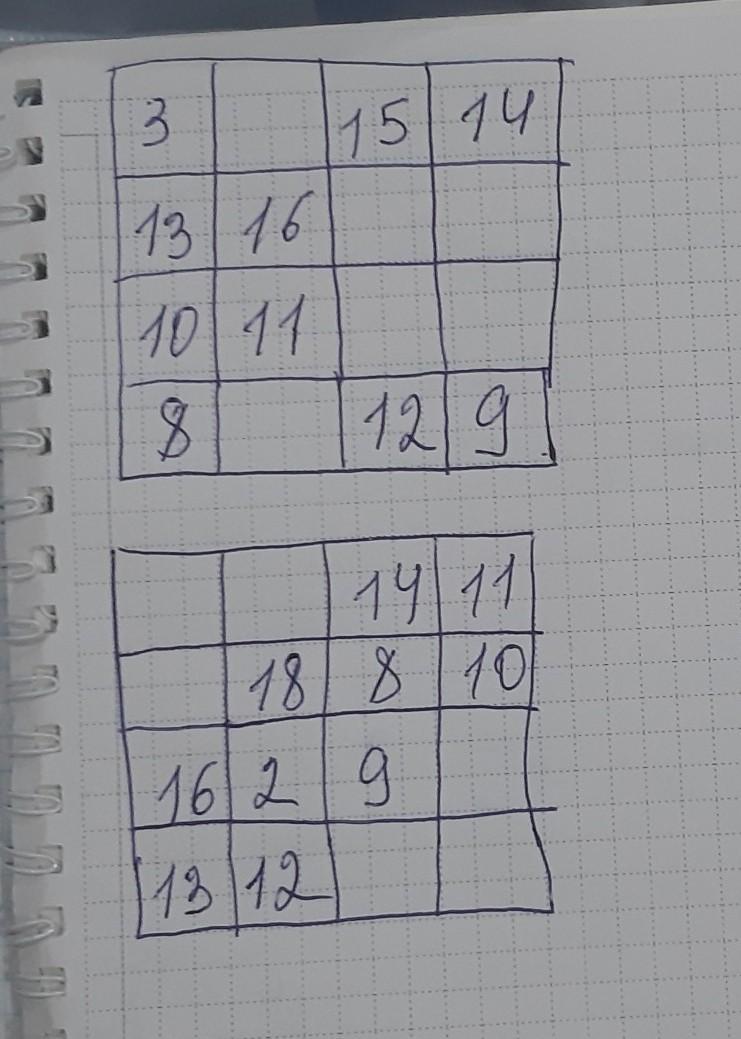 3 15 14
13 16
10 11
8 12 9
14 11
18 8 10
16 2 9
13 12